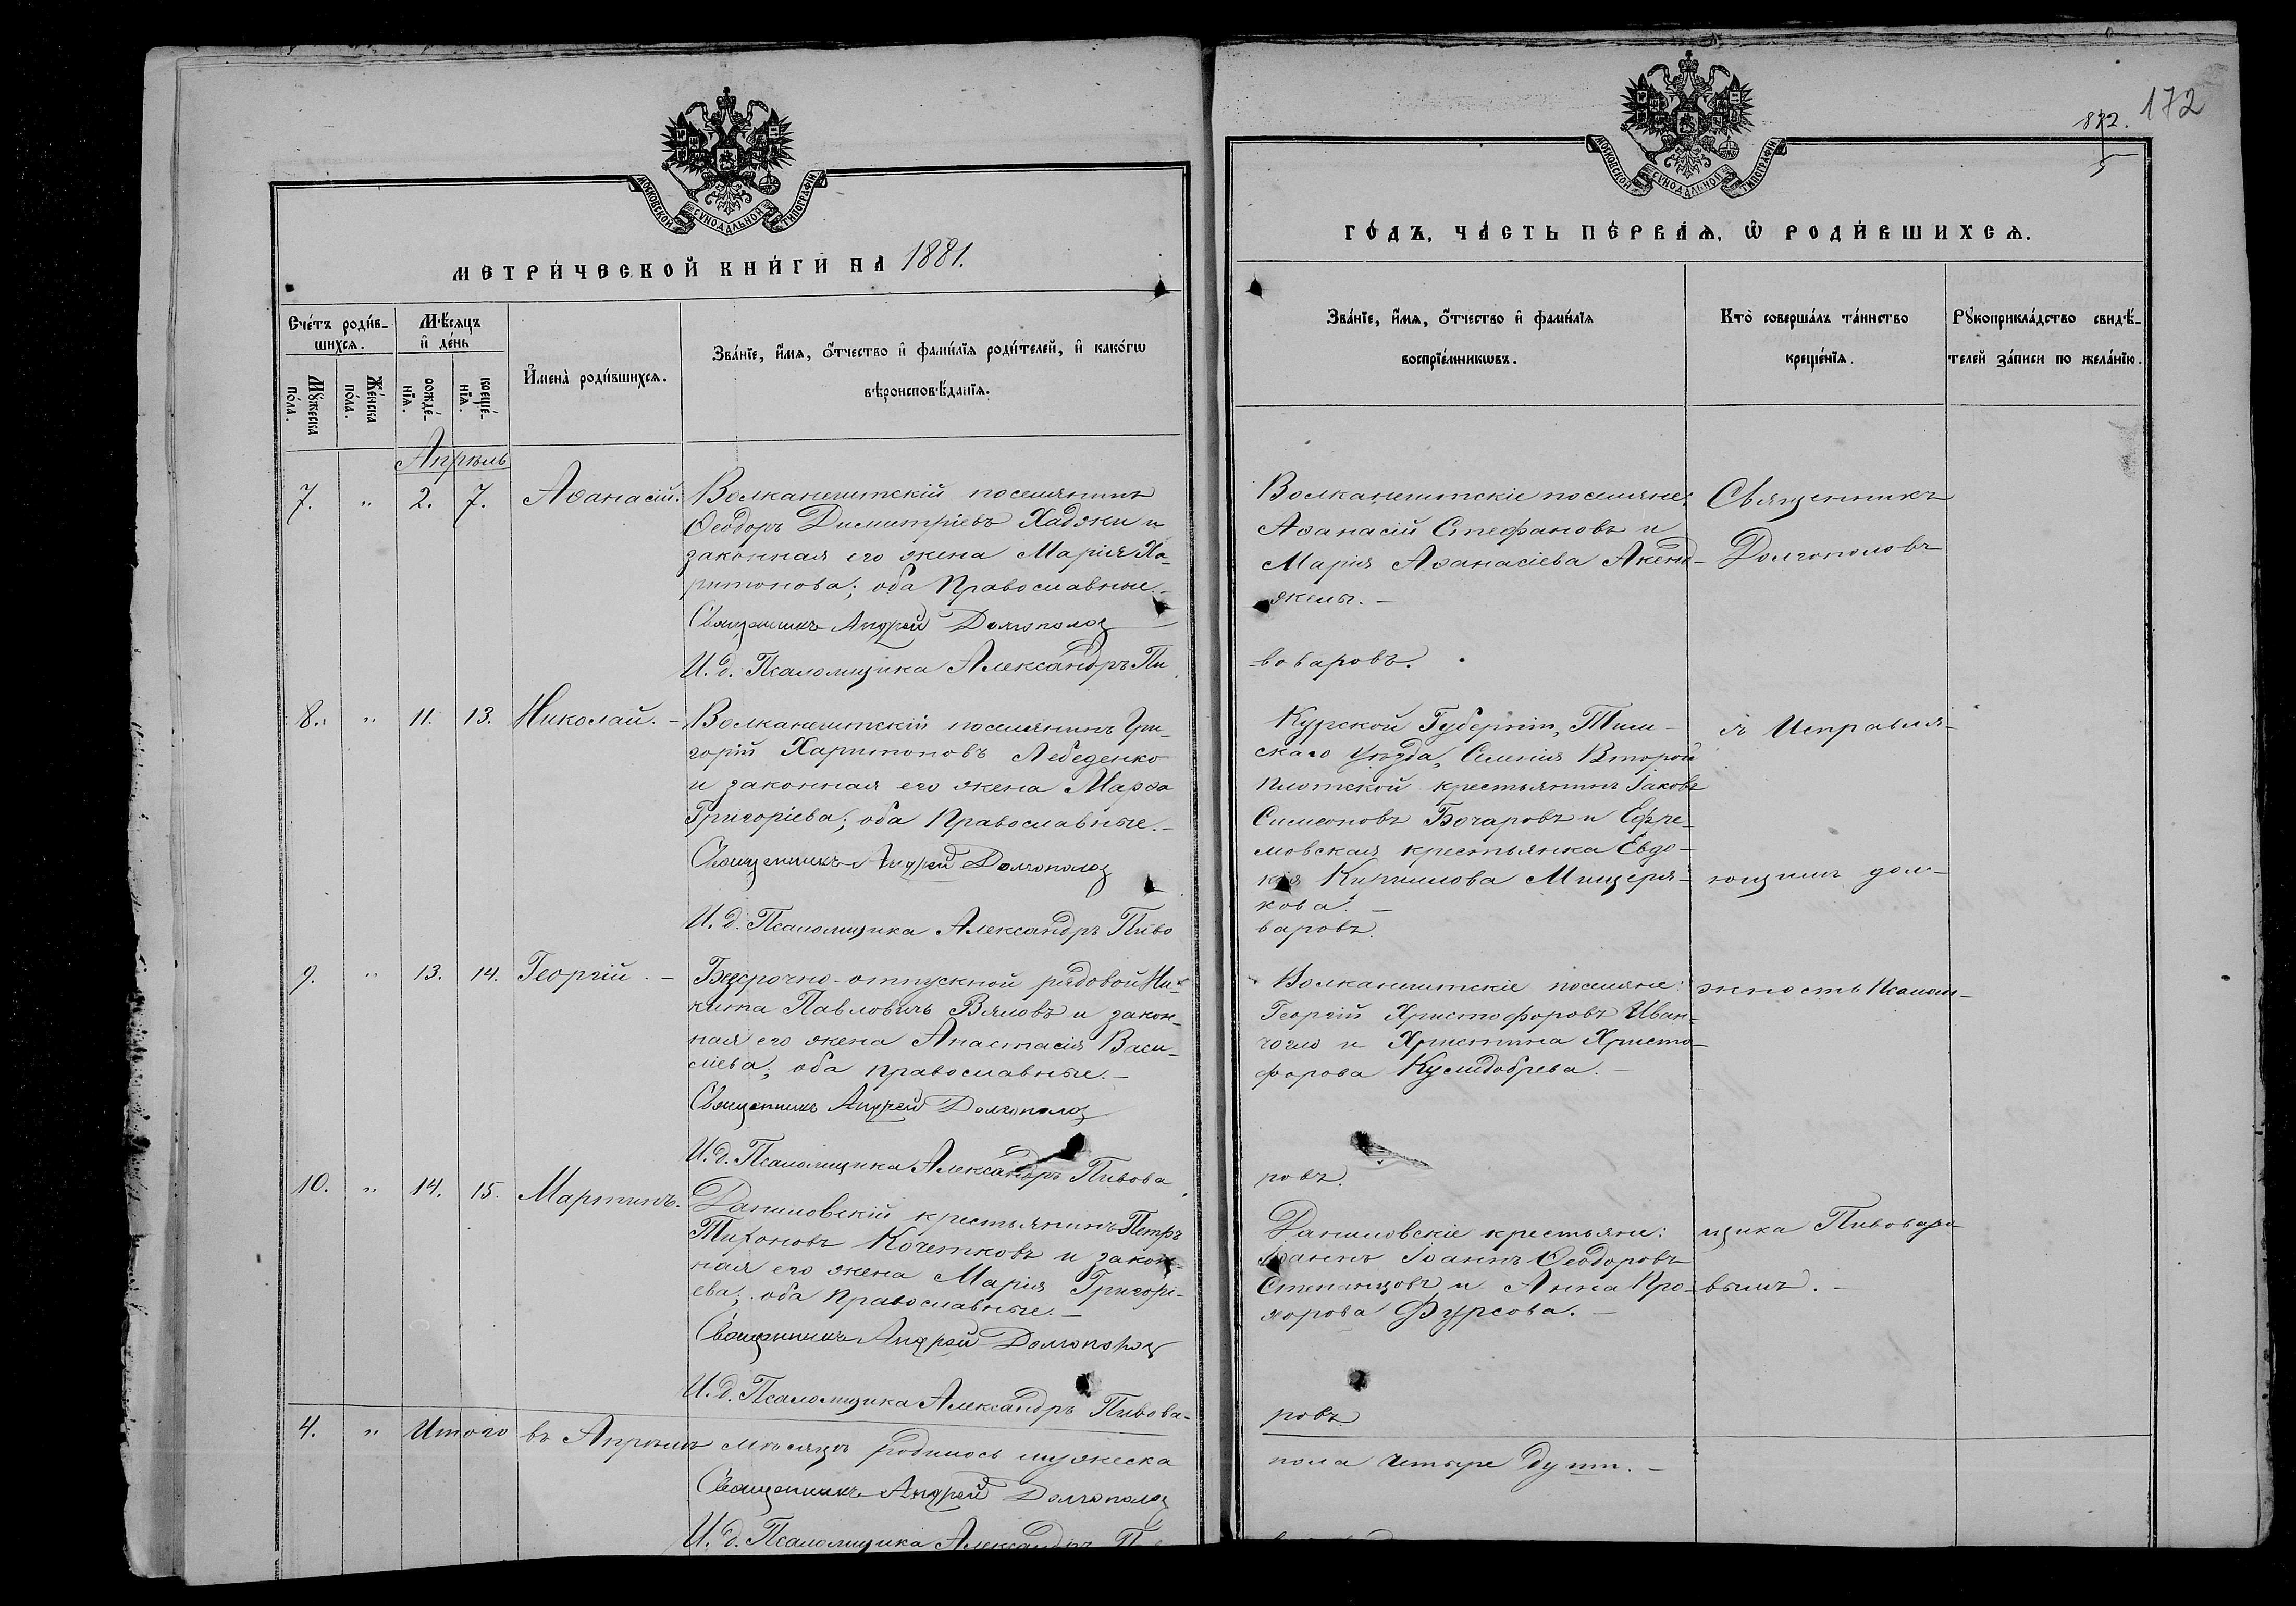 МОСКОВСКОЙ СѴНОДАЛЬНОЙ ТИПОГРАФІИ
МЕТРИ́ЧЕСКОЙ КНИ́ГИ НА 1881.
Сче́тъ роди́в-
шихсѧ.
Мꙋ́жеска
по́ла.
Же́нска
по́ла.
Мѣ́сѧцъ
и҆ де́нь
рожде́-
нїѧ.
креще́-
нїѧ.
И҆мена̀ роди́вшихсѧ.
Зва́нїе, и҆́мѧ, ѻ҆́тчество и҆ фами́лїѧ роди́телей, и҆ како́гѡ
вѣроисповѣ́данїѧ.
Апрѣль
7. „ 2. 7. Аѳанасій. Волканештскій поселянинъ
Ѳеодоръ Димитріевъ Хаджи и
законная его жена Марія Ха-
ритонова; оба Православные.-
Священникъ Андрей Долгополов
И. д. Псаломщика Александръ Пи
8. „ 11. 13. Николай. - Волканештскій поселянинъ Гри-
горій Харитоновъ Лебеденко
и законная его жена Марѳа
Григоріева; оба Православные.-
Священникъ Андрей Долгополов
И. д. Псаломщика Александръ Пиво
9. „ 13. 14. Георгій. - Безсрочно-отпускной рядовой Ни-
кита Павловичъ Вяловъ и закон-
ная его жена Анастасія Васи-
ліева; оба православные.-
Священникъ Андрей Долгополов
И. д. Псаломщика Александръ Пивова
10. „ 14. 15. Мартинъ. Даниловскій крестьянинъ Петръ
Тихоновъ Кочетковъ и закон-
ная его жена Марія Григорі-
ева; оба Православные.-
Священникъ Андрей Долгополов
И. д. Псаломщика Александръ Пивова-
4. „ Итого въ Апрѣлѣ мѣсяцѣ родилось мужеска
Священникъ Андрей Долгополов
И. д. Псаломщика Александръ П
172
872.
МОСКОВСКОЙ СѴНОДАЛЬНОЙ ТИПОГРАФІИ
ГО́ДЪ, ЧА́СТЬ ПЕ́РВАѦ, Ѡ҆ РОДИ́ВШИХСѦ.
Зва́нїе, и҆́мѧ, ѻ҆́тчество и҆ фами́лїѧ
воспрїе́мникѡвъ.
Кто̀ соверша́лъ та́инство
креще́нїѧ.
Рꙋкоприкла́дство свидѣ́-
телей за́писи по жела́нїю.
Волканештскіе поселяне: Священникъ
Аѳанасій Стефановъ и
Марія Аѳанасіева Акенд- Долгополовъ
желы.-
воваровъ.
Курской Губерніи, Тим- съ Исправля-
скаго Уѣзда, Селенія Второй
Плотской крестьянинъ Іаковъ
Симеоновъ Бочаровъ и Ефре-
мовская крестьянка Евдо-
кія Кирилова Мищеря- ющимъ дол-
кова.-
варовъ.
Волканештскіе поселяне: жность Псалом-
Георгій Христофоровъ Иван-
чогло и Христина Христо-
форова Кумидобрева.-
ровъ.
Даниловскіе крестьяне: щика Пивовара-
Іоаннъ Ѳеодоровъ
Степанцовъ и Анна Про- вымъ.-
хорова Фурсова.-
ровъ
пола четыре души.-